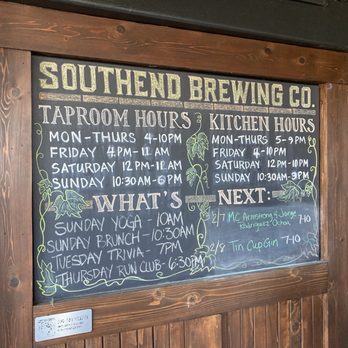 SOUTHEND BREWING CO.
TAPROOM HOURS
MON-THURS 4-10PM
FRIDAY 4PM-12AM
SATURDAY 12PM-12AM
SUNDAY 10:30AM-6PM
KITCHEN HOURS
MON-THURS 5-9PM
FRIDAY 4-10PM
SATURDAY 12-10PM
SUNDAY 10:30AM-
WHAT'S NEXT:
SUNDAY YOGA - 10AM
SUNDAY BRUNCH - 10:30AM
TUESDAY TRIVIA - 7PM
THURSDAY RUN CLUB - 6:30PM
2/7 MC Armstrong & Jorge
Rodriguez Ochoa 7-10
2/8 Tin Cup Gin 7-10